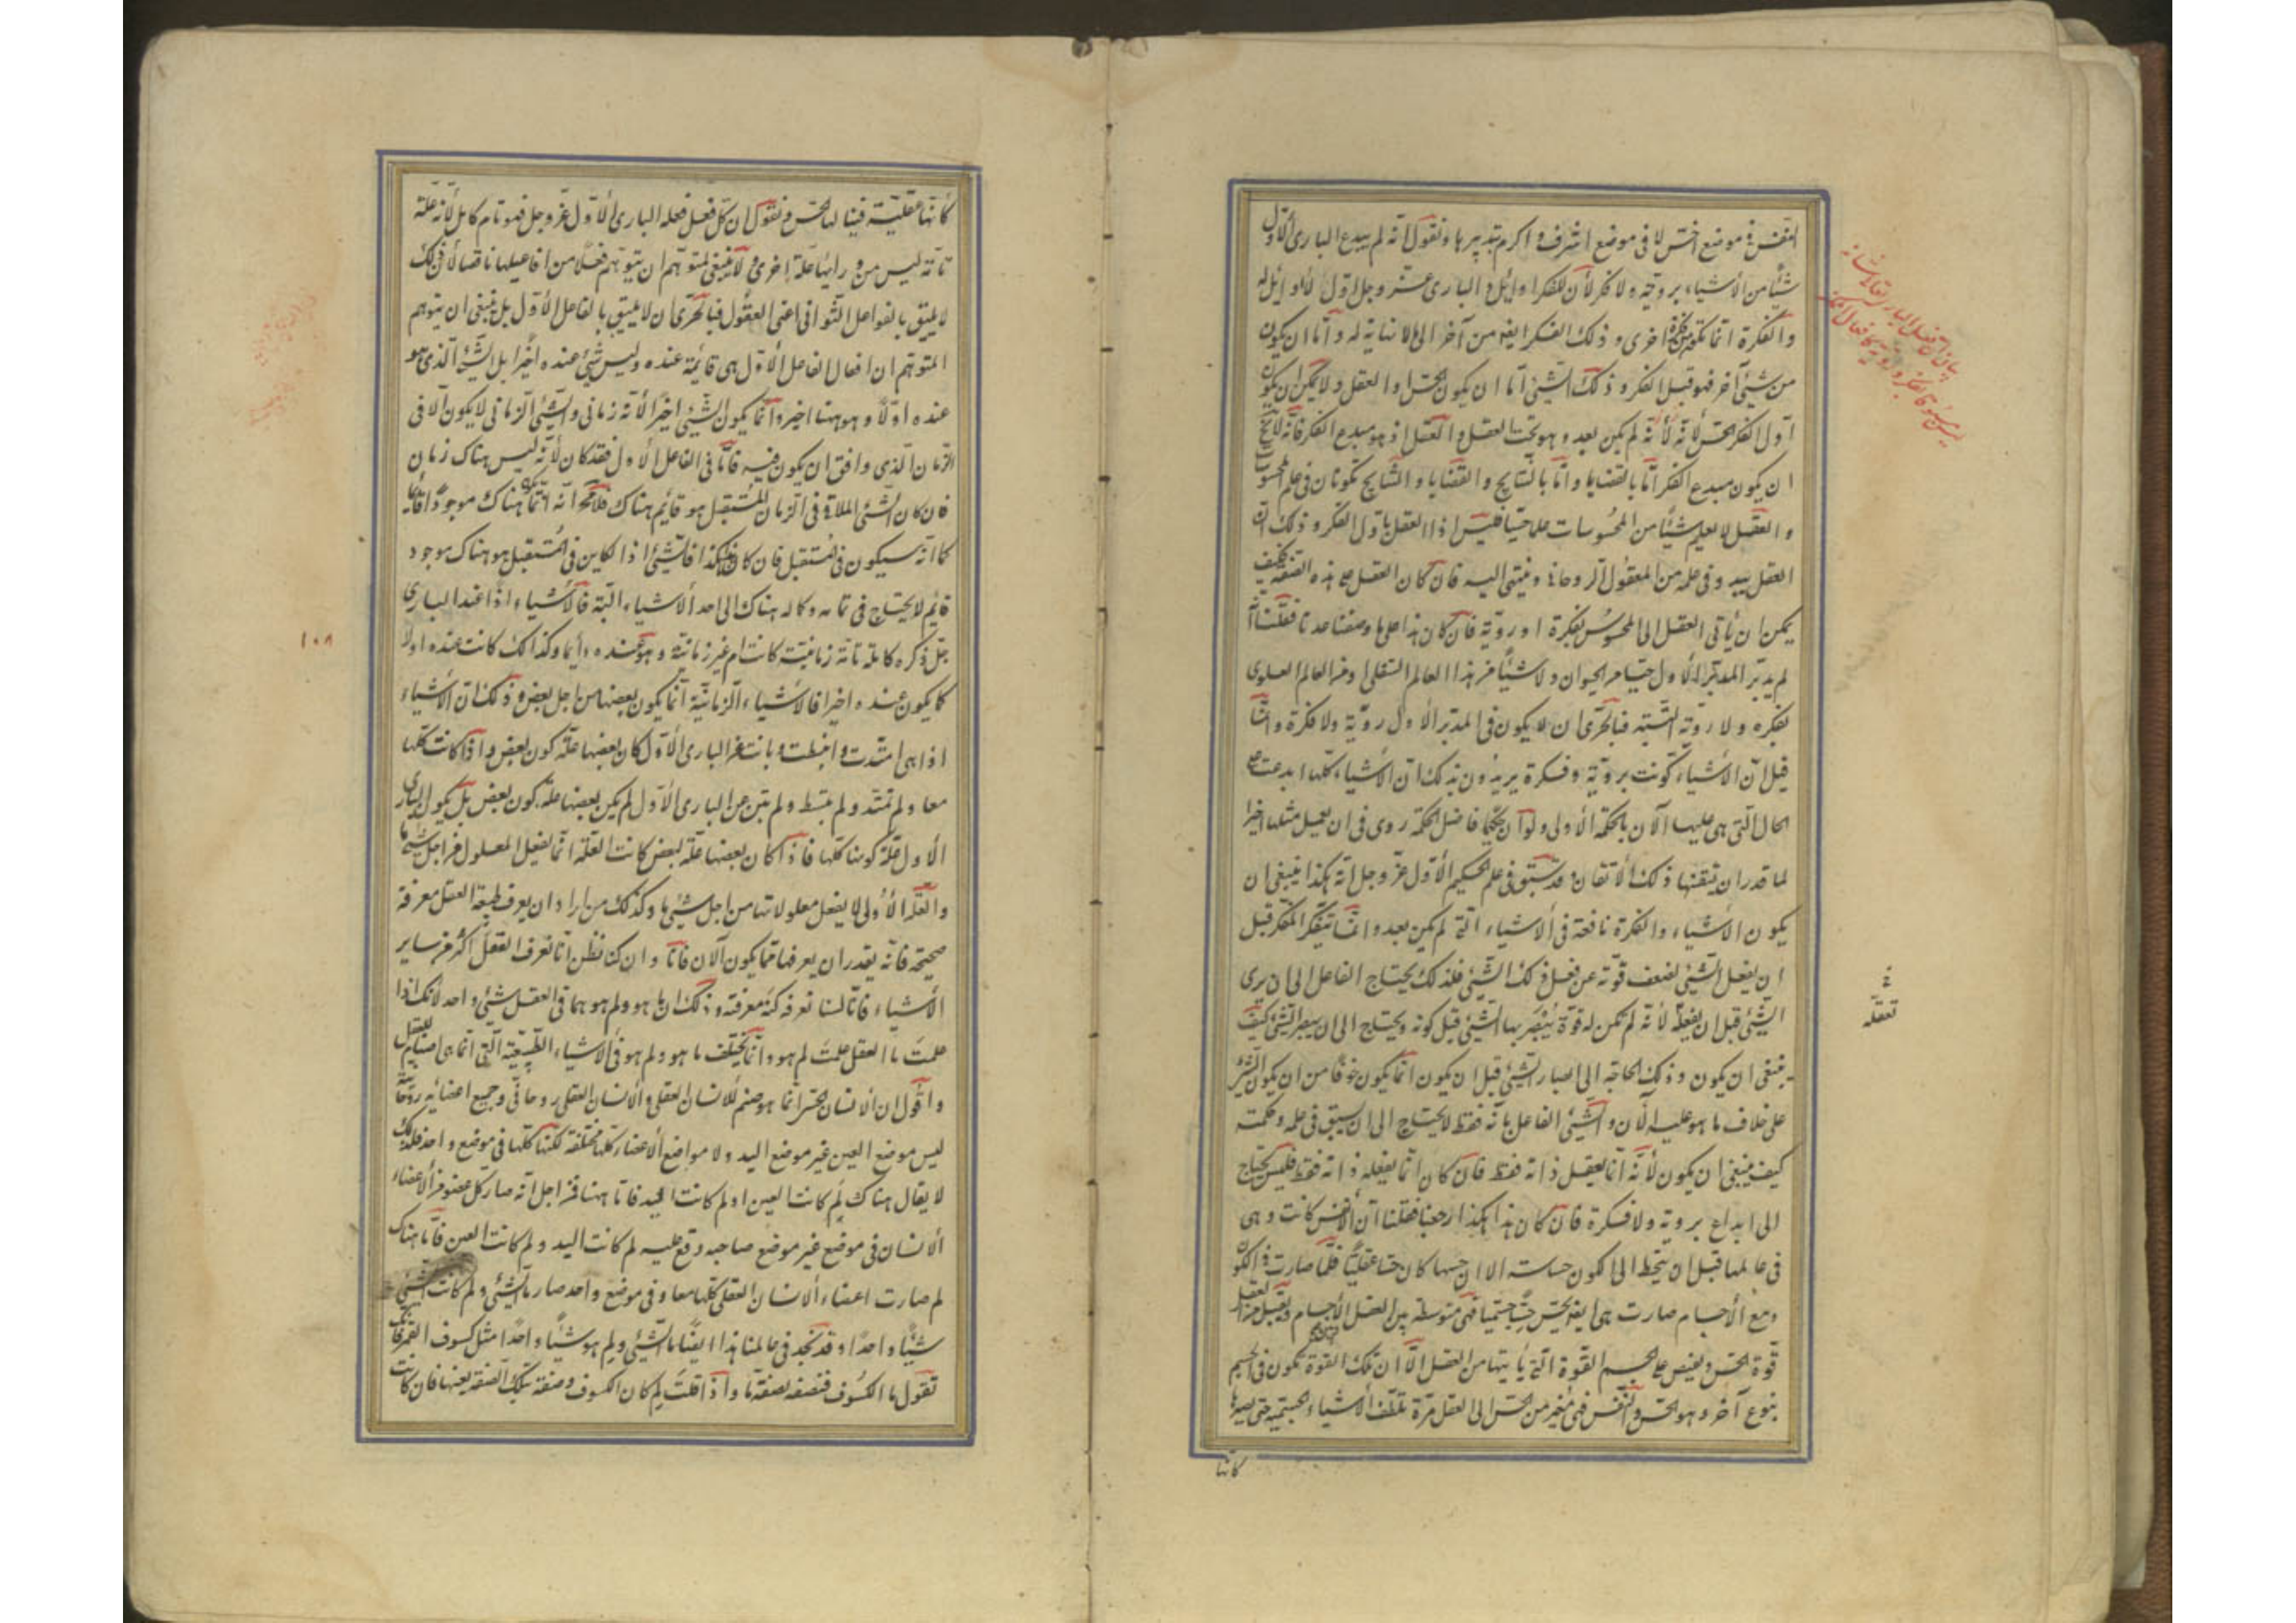 النفس في موضع اخس لا في موضع اشرف و اكرم تدبيرها و نقول انه لم يبدع الباري الاول
شيئا من الأشياء بروية ولا فكر لأن للفكر اوايل و الباري عز وجل اول لا اوايل له
و الفكرة انما تكون من فكرة اخرى و ذلك الفكر ايضا من آخر الى ما لا نهاية له و اما ان يكون
من شيئ آخر فهو قبل الفكر و ذلك الشيئ اما ان يكون الحس او العقل و لا يمكن ان يكون
اول الفكر الحس لأنه لم يكن بعد و هو تحت العقل و العقل اذ هو مبدع الفكر فانه لا
ان يكون مبدع الفكر اما بالقضايا و اما بالنتايج و القضايا و النتايج تكونان في علم المحسوسات
و العقل لا يعلم شيئا من المحسوسات علما حسيا فليس اذا العقل باول الفكر و ذلك ان
العقل يبدو في علمه من المعقول الروحاني و ينتهي اليه فان كان العقل على هذه الصفة فكيف
يمكن ان يأتي العقل الى المحسوس بفكرة او روية فان كان هذا على ما وصفنا عدنا فقلنا انه
لم يدبر المدبر الأول حيا من الحيوان و لا شيئا من هذا العالم السفلي او من العالم العلوي
بفكره و لا روية البتة فبالحرى ان لا يكون في المدبر الأول روية ولا فكرة و انما
قيل ان الأشياء كونت بروية و فكرة يريدون بذلك ان الأشياء كلها ابدعت على
الحال التي هي عليها الآن بالحكمة الأولى و لو ان حكيما فاضل الحكمة روى في ان يعمل مثلها اخيرا
لما قدر ان يتقنها ذلك الأتقان و قد سبق في علم الحكيم الأول عز وجل انه هكذا ينبغي ان
يكون الأشياء و الفكرة نافعة في الأشياء التي لم يكن بعد و انما يتفكر المفكر قبل
ان يفعل الشيئ لضعف قوته عن فعل ذلك الشيئ فلذلك يحتاج الفاعل الى ان يرى
الشيئ قبل ان يفعله لأنه لم تكن له قوة يبصر بها الشيئ قبل كونه و يحتاج الى ان يبصر الشيئ كيف
ينبغي ان يكون و ذلك الحاجة الى ابصار الشيئ قبل ان يكون انما يكون خوفا من ان يكون الشيئ
على خلاف ما هو عليه الآن و الشيئ الفاعل بانه فقط لا يحتاج الى ان يسبق في علمه و حكمته
كيف ينبغي ان يكون لأنه انما يعقل ذاته فقط فان كان انما يفعله ذاته فقط فليس يحتاج
الى ابداع بروية و لا فكرة فان كان هذا هكذا رجعنا فقلنا ان الأنفس كانت و هي
في عالمها قبل ان ينحط الى الكون حساسة الا ان حسها كان حسا عقليا فلما صارت في الكون
و مع الأجسام صارت هي ايضا تحس حسا جسميا فهي متوسطة بين العقل و الأجسام و تقبل من العقل
قوة الحس و تفيض على الجسم القوة التي يأتيها من العقل الا ان تلك القوة تكون في الجسم
بنوع آخر و هو الحس و النفس فهي تغير من الحس الى العقل مرة تلطف الأشياء الجسمية حتى يصيرها
كأنها
تعقله
كأنها عقلية فينالها الحس و نقول ان كل فعل فعله الباري الأول عز وجل فهو تام كامل لأنه علة
تامة ليس من ورائها علة اخرى و لا ينبغي لمتوهم ان يتوهم فعلا من افاعيلها ناقصا لأن ذلك
لا يليق بالفواعل الثواني اعني العقول فبالحرى ان لا يليق بالفاعل الأول بل ينبغي ان يتوهم
المتوهم ان افعال الفاعل الأول هي قائمة عنده و ليس شيئ عنده اخيرا بل الشيئ الذي هو
عنده اولا و هو ههنا اخير و انما يكون الشيئ اخيرا لأنه زماني و الشيئ الزماني لا يكون الا في
الزمان الذي وافق ان يكون فيه فأما في الفاعل الأول فقد كان لأنه ليس هناك زمان
فان كان الشيئ الملاقي في الزمان المستقبل هو قائم هناك فلا محة انه انما يكون هناك موجودا قائما
كما انه سيكون في المستقبل فان كان هذا هكذا فالشيئ اذا الكاين في المستقبل هو هناك موجود
قايم لا يحتاج في تمامه و كماله هناك الى احد الأشياء البتة فالأشياء اذا عند الباري
جل ذكره كاملة تامة زمانية كانت ام غير زمانية و هو عنده دايما و كذلك كانت عنده اولا
كما يكون عنده اخيرا فالأشياء الزمانية انما يكون بعضها من اجل بعض و ذلك ان الأشياء
اذا هي امتدت و انبسطت و بانت عن الباري الأول كان بعضها علة كون بعض و اذا كانت كلها
معا و لم تمتد و لم تنبسط و لم تبن عن الباري الأول لم يكن بعضها علة كون بعض بل يكون الباري
الأول علة كونها كلها فاذا كان بعضها علة لبعض كانت العلة انما تفعل المعلول من اجل شيئ ما
و العلة الأولى لا يفعل معلولاتها من اجل شيئ ما و كذلك من اراد ان يعرف طبيعة العقل معرفة
صحيحة فانه يقدر ان يعرفها مما يكون الآن فانا و ان كنا نظن انا نعرف العقل اكثر من ساير
الأشياء فانا لسنا نعرفه كنه معرفته و ذلك ان ما هو و لم هو هما في العقل شيئ واحد لأنك اذا
علمت ما العقل علمت لم هو و انما يختلف ما هو و لم هو في الأشياء الطبيعية التي انما هي اصنام للعقل
و اقول ان الأنسان الحسي انما هو صنم للأنسان العقلي و الأنسان العقلي روحاني و جميع اعضائه روحانية
ليس موضع العين غير موضع اليد و لا مواضع الأعضاء كلها مختلفة لكنها كلها في موضع واحد فلذلك
لا يقال هناك لم كانت العين او لم كانت اليد فأما ههنا فمن اجل انه صار كل عضو من الأعضاء
الأنسان في موضع غير موضع صاحبه وقع عليه لم كانت اليد و لم كانت العين فأما هناك
لم صارت اعضاء الأنسان العقلي كلها معا و في موضع واحد صار ما الشيئ و لم كانت الشيئ
شيئا واحدا و قد نجد في عالمنا هذا ايضا ما الشيئ و لم هو شيئا واحدا مثل كسوف القمر فانك
تقول ما الكسوف فتصفه بصفة ما و اذا قلت لم كان الكسوف وصفته بتلك الصفة بعينها فان كانت
١٠٨